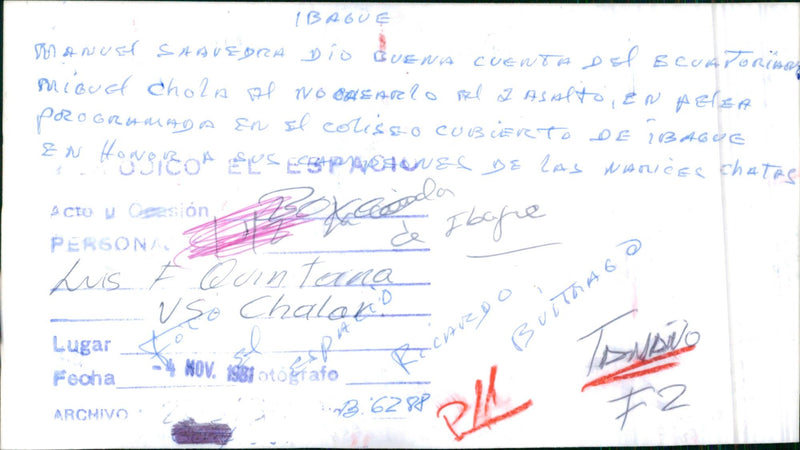 IBAGUE
MANUEL SAAVEDRA DIO BUENA CUENTA DEL ECUATORIANO
MIGUEL CHOLA AL NOQUEARLO AL 2 ASALTO, EN PELEA
PROGRAMADA EN EL COLISEO CUBIERTO DE IBAGUE
EN HONOR A SUS CAMPEONES DE LAS NARICES CHATAS
ODICO EL ESPACIO
Acto u Ocasión
de Ibague
PERSONA
Luis F Quintana
VS. Chalar
RICARDO BUITRAGO
Lugar Foto el espacio
Fecha -4 NOV. 1981 otógrafo
TAMAÑO
F2
ARCHIVO B. 6288